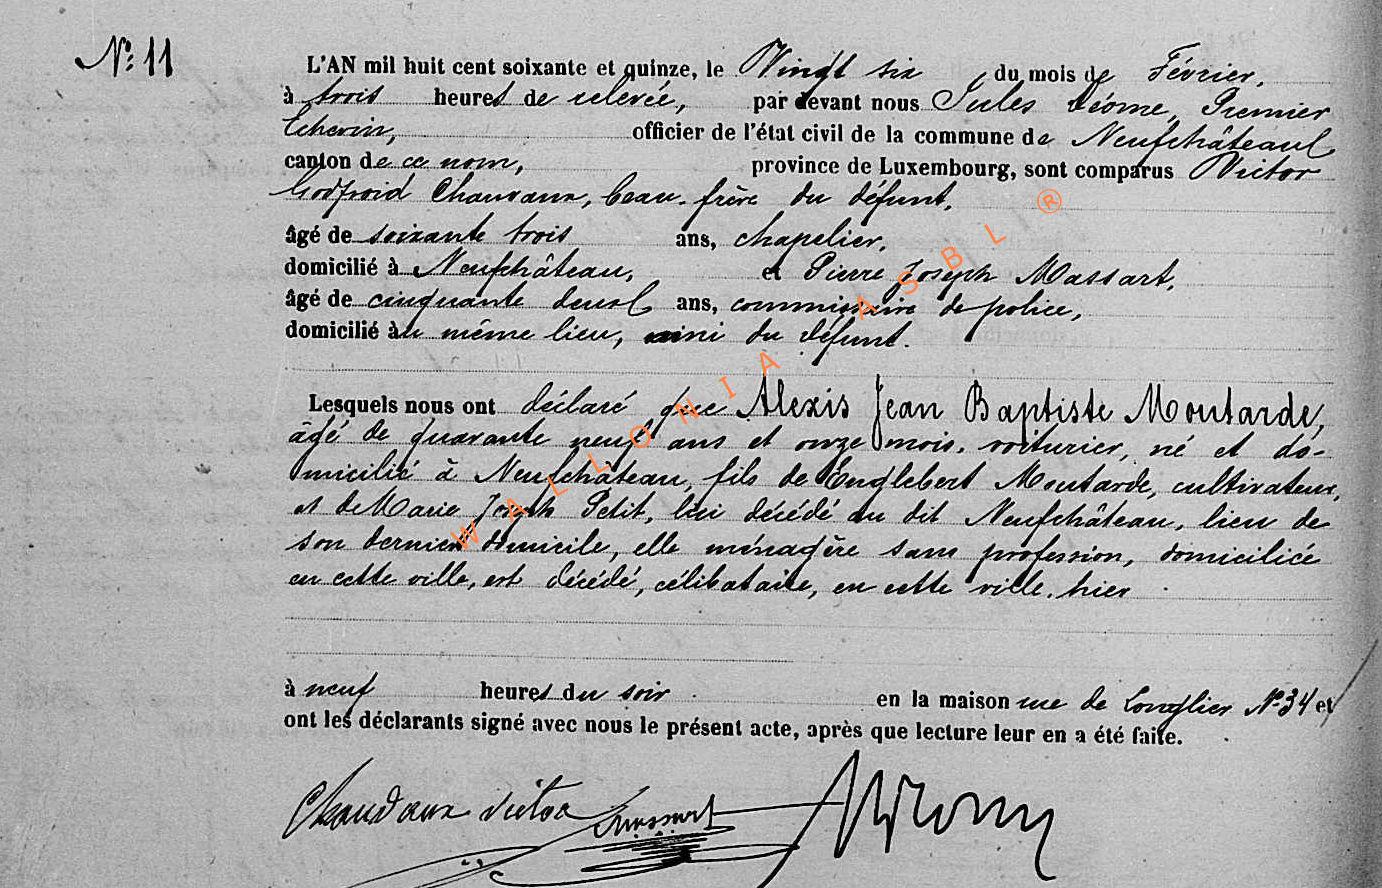 Nº 11
L'AN mil huit cent soixante et quinze, le Vingt six du mois de Février,
à trois heures de relevée, par devant nous Jules Déome, Premier
Echevin, officier de l'état civil de la commune de Neufchâteau
canton de ce nom, province de Luxembourg, sont comparus Victor
Godfroid Chauvaux, beau-frère du défunt,
âgé de soixante trois ans, chapelier,
domicilié à Neufchâteau, et Pierre Joseph Massart,
âgé de cinquante deux ans, commissaire de police,
domicilié au même lieu, ami du défunt.
Lesquels nous ont déclaré que Alexis Jean Baptiste Moutarde,
âgé de quarante neuf ans et onze mois, voiturier, né et do-
micilié à Neufchâteau, fils de Englebert Moutarde, cultivateur,
et de Marie Joseph Petit, lui décédé au dit Neufchâteau, lieu de
son dernier domicile, elle ménagère sans profession, domiciliée
en cette ville, est décédé, célibataire, en cette ville, hier
à neuf heures du soir en la maison rue de Longlier Nº 34 et
ont les déclarants signé avec nous le présent acte, après que lecture leur en a été faite.
Victor Massart
WALLONIA ASBL ®